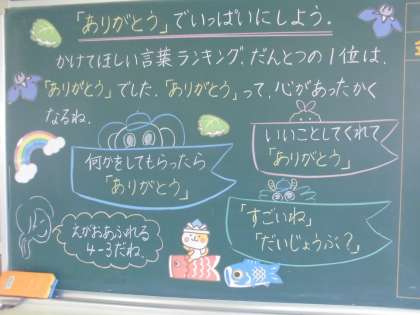 「ありがとう」でいっぱいにしよう。
かけてほしい言葉ランキング、だんとつの1位は、
「ありがとう」でした。「ありがとう」って、心があったかく
なるね。
何かをしてもらったら
「ありがとう」
いいことしてくれて
「ありがとう」
「すごいね」
「だいじょうぶ?」
えがおあふれる
4-3だね。